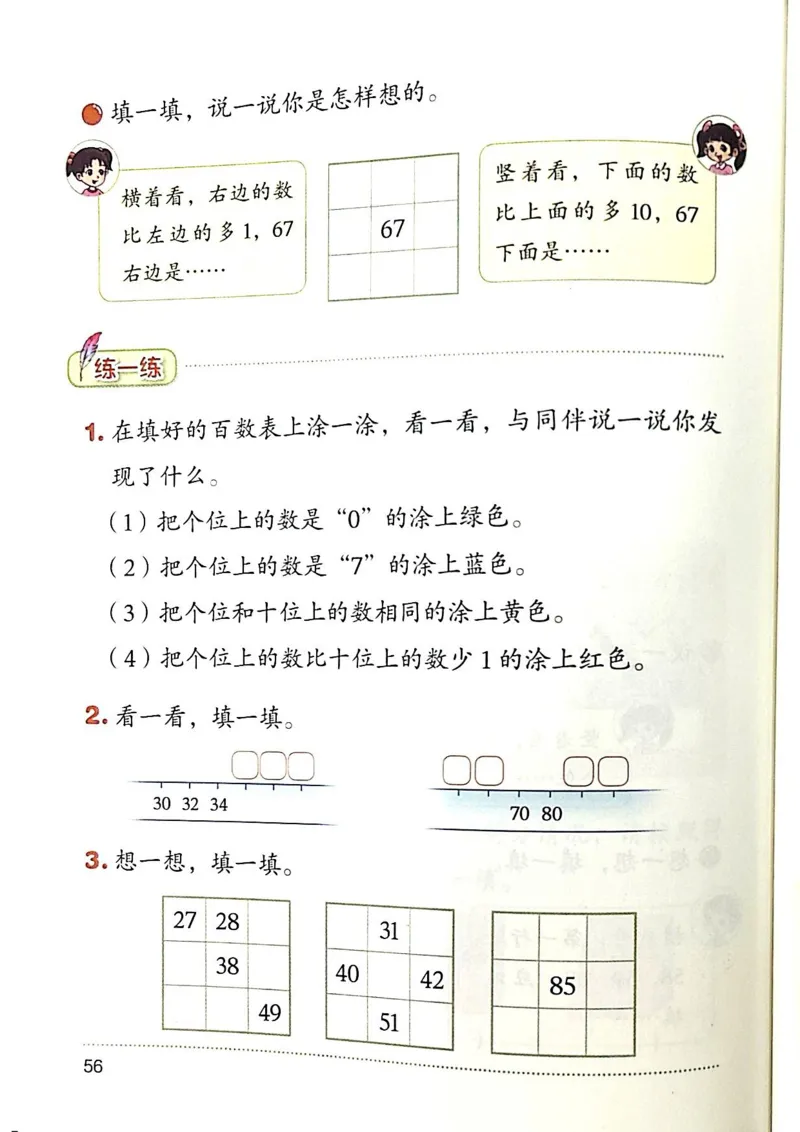 填一填，说一说你是怎样想的。
横着看，右边的数
比左边的多1，67
右边是……
67
竖着看，下面的数
比上面的多10，67
下面是……
练一练
1. 在填好的百数表上涂一涂，看一看，与同伴说一说你发
现了什么。
（1）把个位上的数是“0”的涂上绿色。
（2）把个位上的数是“7”的涂上蓝色。
（3）把个位和十位上的数相同的涂上黄色。
（4）把个位上的数比十位上的数少1的涂上红色。
2. 看一看，填一填。
30 32 34
70 80
3. 想一想，填一填。
27 28
38
49
31
40 42
51
85
56